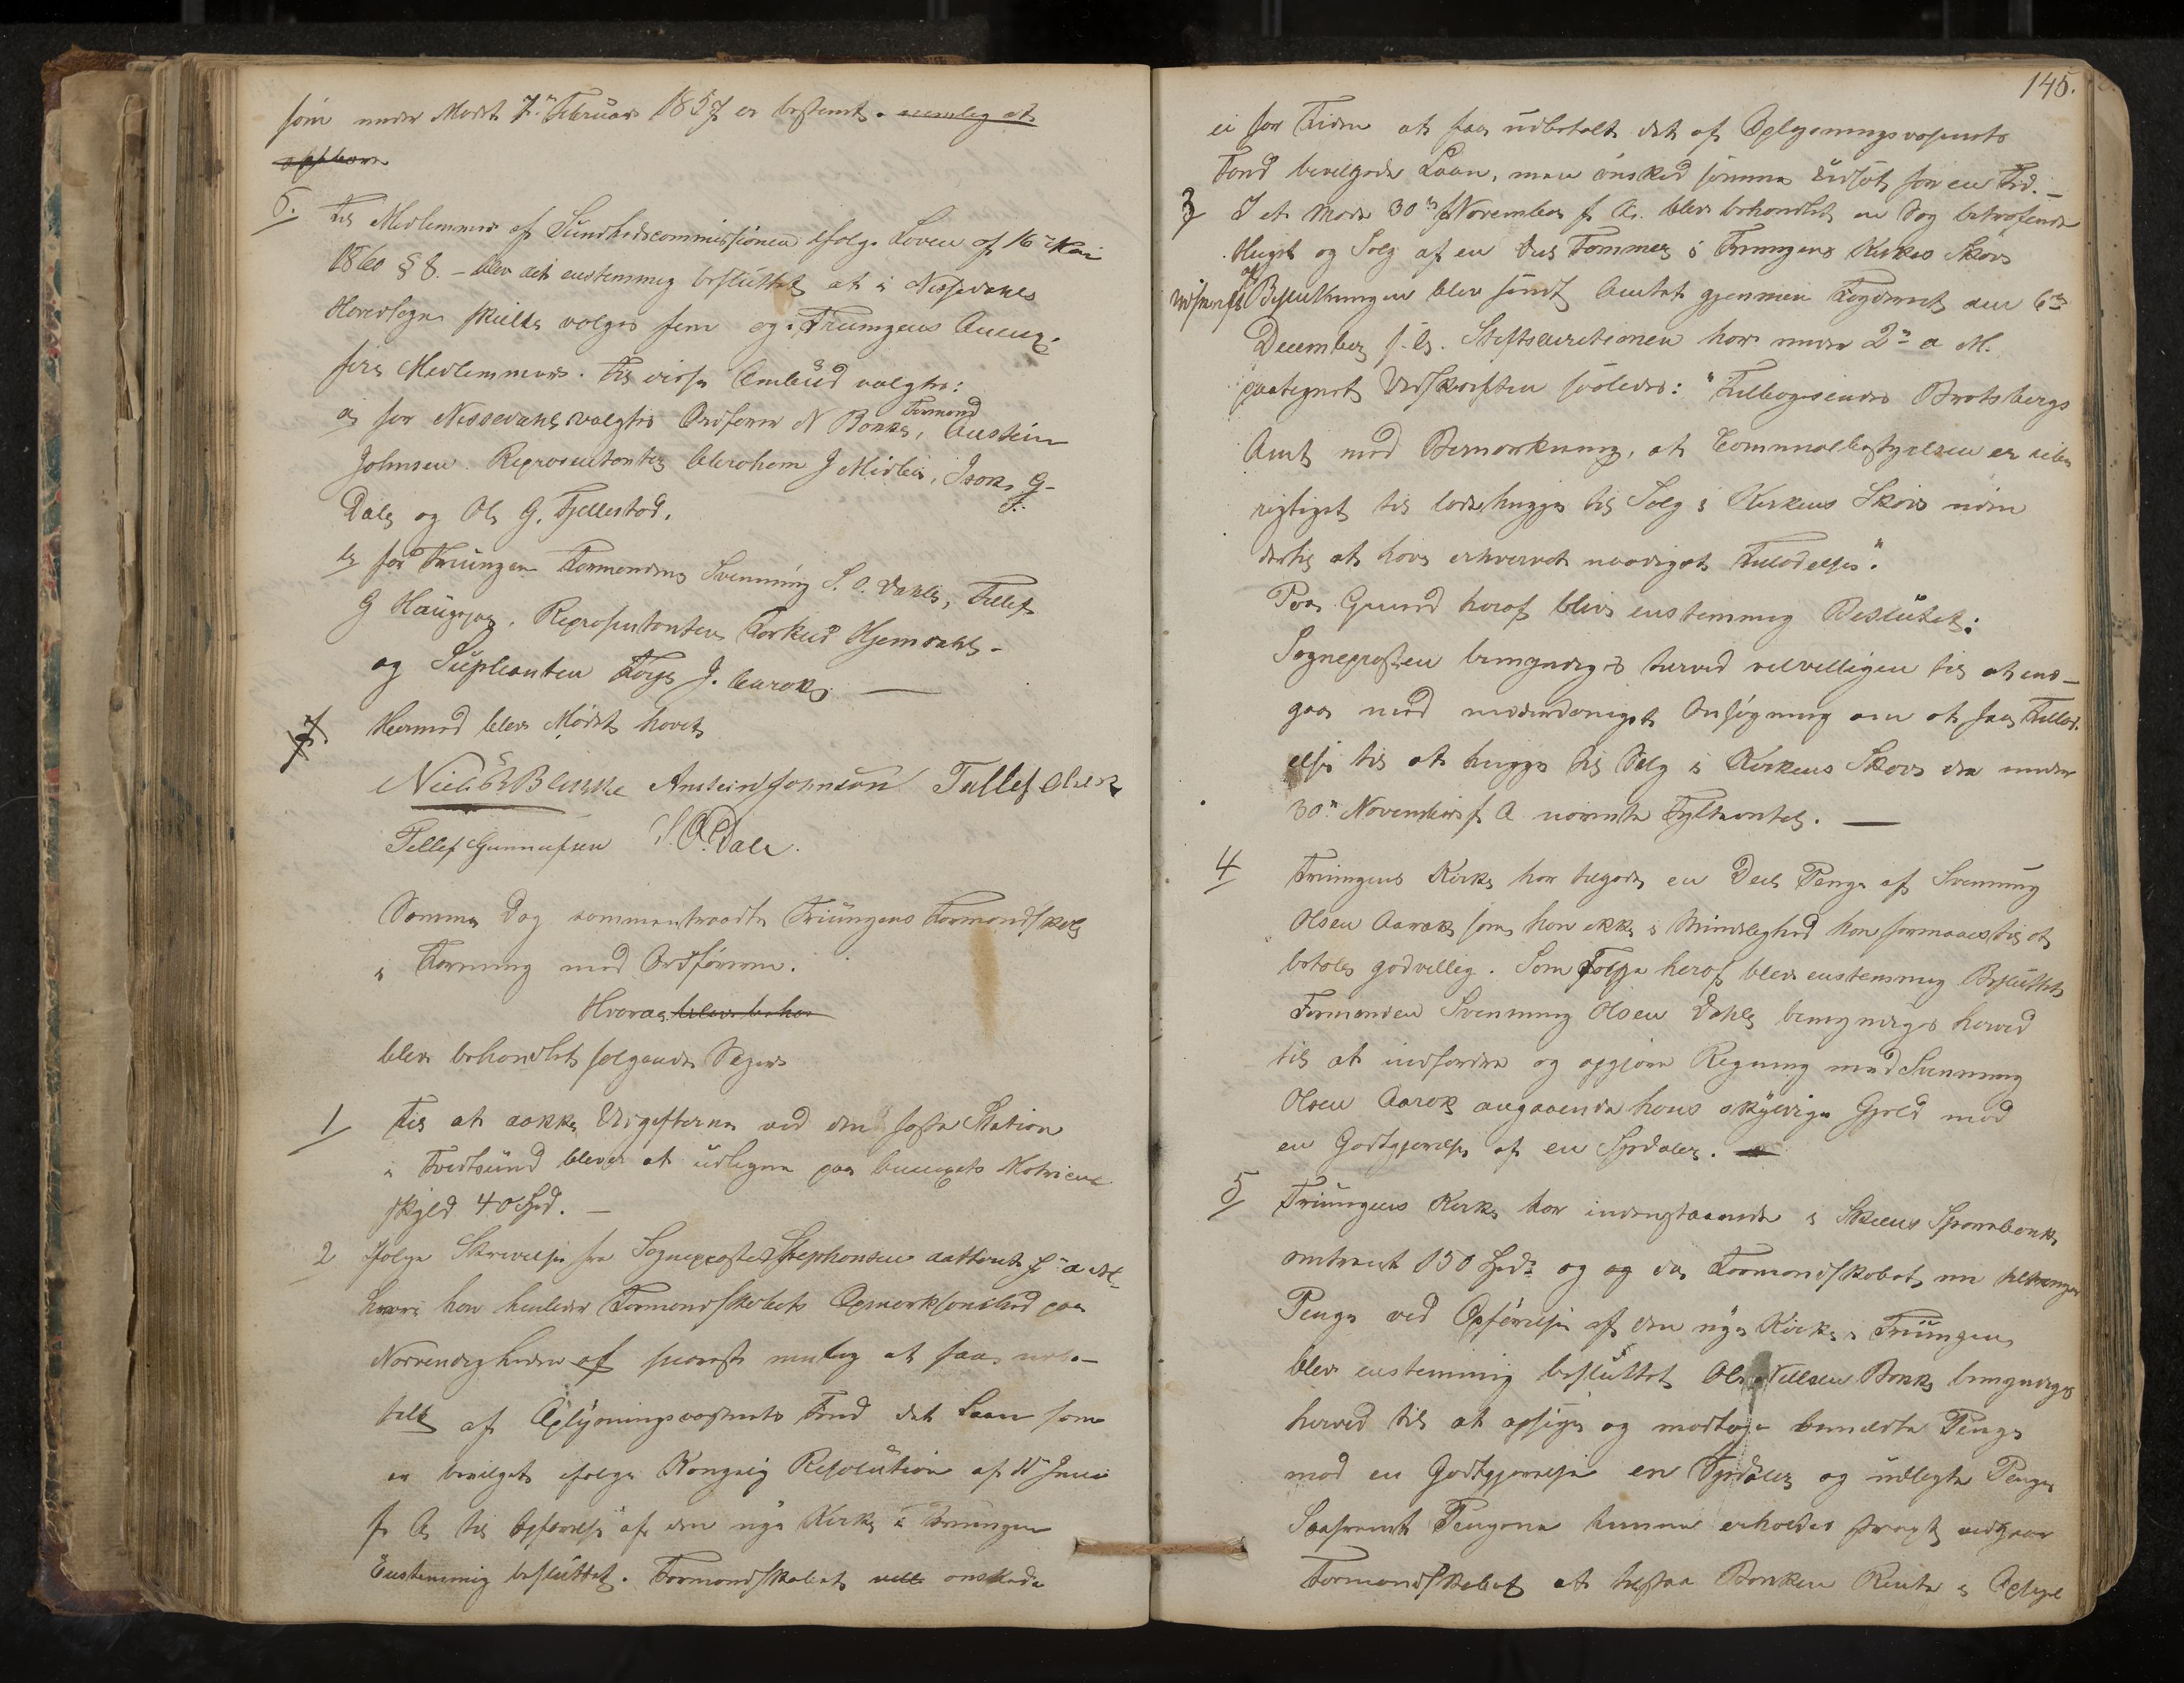 som under Mødet 7n Februar 1857 er bestemt. nemlig at
ophøre
6. Til Medlemmer af Sundhedscommissionen ifølge Loven af 16 Mai
1860 § 8. – blev det eenstemmig besluttet at i Nissedahls
Hovedsogn skulde vælges fem og i Treungens Annex
fire Medlemmer. Til disse Ombud valgtes:
a, for Nissedahl valgtes Ordfører N Bonke, Formand Austein
Johnsen. Repræsentanter Abraham J Midbø, Isak G
Dale og Ole G. Fjellestad.
b, for Treungen Formændene Svenning S. O. Dahle, Tellef
G Haugsjaa, Repræsentanten Torkild Hjemdahl
og Supleanten Torje J. Aarak. —
7. Hermed blev Mødet hævet
Austein Johnson Tellef Olsen
Tellef Gunnufsen S. O. Dale.
Samme Dag sammentraadte Treungens Formandskab
i Forening med Ordføreren.
Hvoraa blev beha
blev behandlet følgende Sager
1/ Til at dække Udgifterne ved den faste Station
i Tveitsund blev at udligne paa Annexets Matricul
skyld 40 Spd. –
2 Ifølge Skrivelse fra Sognepresten Stephansen dateret a M
hvori han henleder Formandskabets Opmærksomhed paa
Nødvendigheden af snarest mulig at faa udbe-
talt af Oplysningsvæsenets Fond det Laan som
er bevilget ifølge Kongelig Resolution af 11 Juni
f A. til Opførelse af den nye Kirke i Treungen
Eenstemmig besluttet. Formandskabet vill ønskede
145.
ei for Tiden at faa udbetalt det af Oplysningsvæsenets
Fond bevilgede Laan, men ønsked samme udsat for en Tid. –
3 I et Møde 30n November f A. blev behandlet en Sag betræfende
Hugst og Salg af en Deel Tømmer i Treungens Kirkes Skov
Udskrift af Beslutningen blev sendt Amtet gjennem Fogderiet den 6n
December f. A. Stiftsdirectionen har under 2n d. M.
paategnet Udskriften saaledes: "Tilbagesendes Bratsbergs
Amt med Bemærkning, at Communalbestyrelsen er uberettiget
til lade hugge til Salg i Kirkens Skov uden
dertil at have erhvervet naadigst Tilladelse".
Paa Grund heraf blev eenstemmig Beslutet:
Sognepresten bemyndiges herved velvilligen til at ind-
gaa med underdanigst Ansøgning om at faa Tillad-
else til at hugge til Salg i Kirkens Skov den under
30n November f A nævnte Tylvtantal. —
4/ Treungens Kirke har tilgode en Deel Penge af Svenning
Olsen Aarak som han ikke i Mindelighed kan formaaes til at
betale godvillig. Som Følge heraf blev eenstemmig Besluttet
Formanden Svenning Olsen Dahle bemyndiges herved
til at indfordre og opgjøre Regning med Svenning
Olsen Aarak angaaende hans skyldige Gjeld mod
en Godtgjørelse af en Spdaler. —
5/ Treungens Kirke har indestaaende i Skiens Sparebank
omtrent 150 Spd. og og da Formandskabet nu tiltrenger
Penge ved Opførelse af den nye Kirke i Treungen
blev eenstemmig besluttet Ole Nielsen Bonke bemyndiges
herved til at opsige og modtage bemeldte Penge
mod en Godtgjørelse en Spdaler og udlagte Penge
Saafremt Pengene kunne erholdes strax vedgaar
Formandskabet at tilstaa Banken Rente i Opsigel